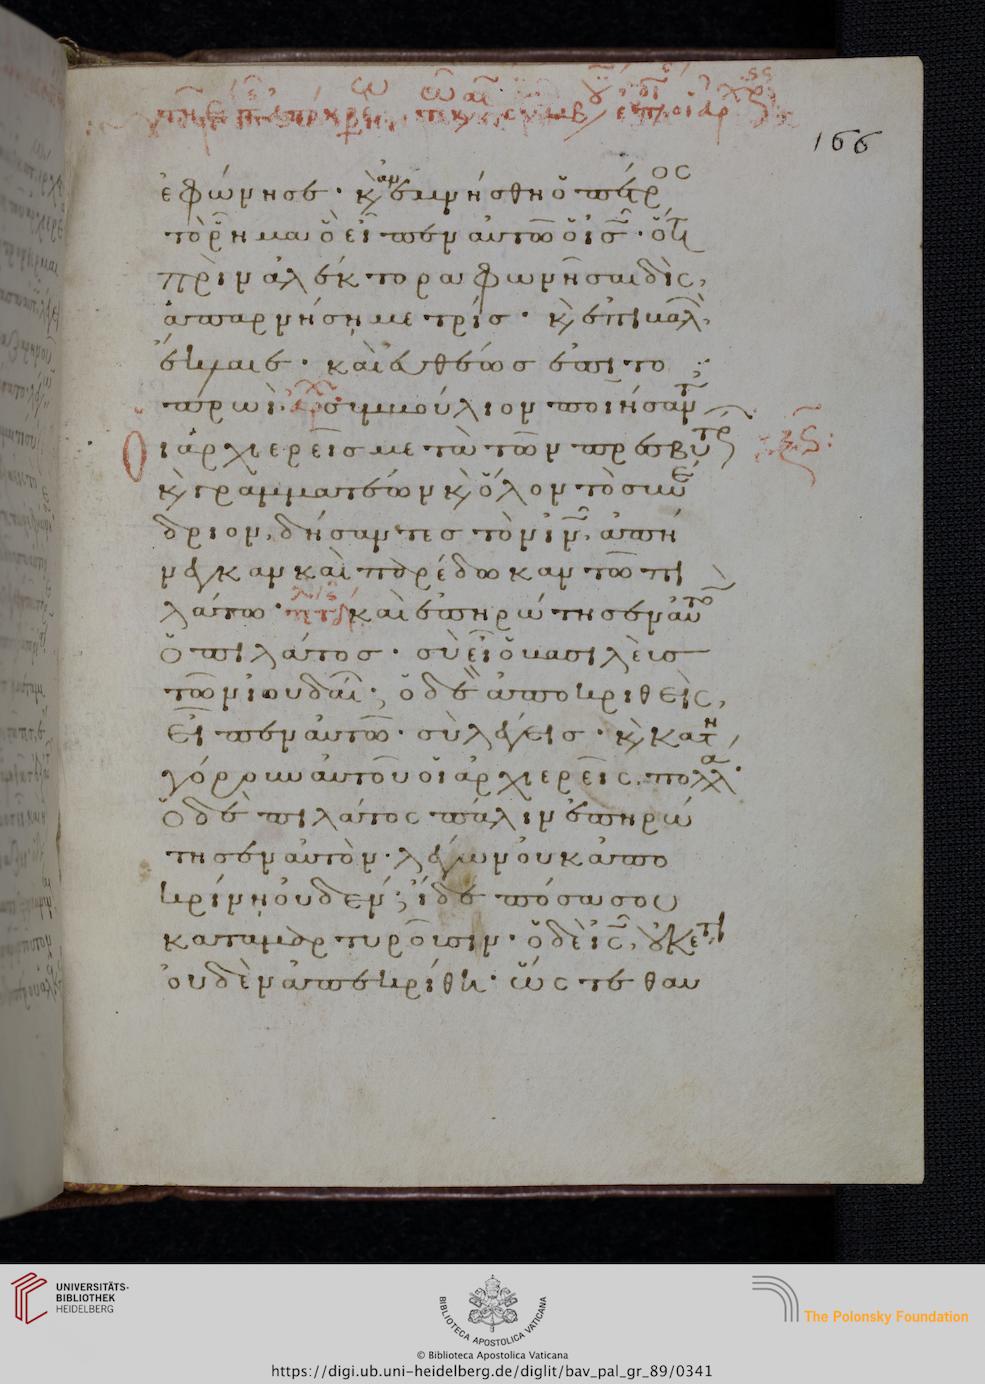 166
ἐφώνησε · κ(αὶ) ἀνεμνήσθη ὁ πέτρος
τὸ ῥῆμα ὃ εἶπεν αὐτῶ ὁ ἰς · ὅτι
πρὶν ἀλέκτορα φωνῆσαι δὶς,
ἀπαρνήση με τρίς · κ(αὶ) ἐπιβαλ(ὼν)
ἔκλαιε · καὶ εὐθέως ἐπὶ το
πρωῒ · συμβούλιον ποιήσαντ(ες)
Οἱ ἀρχιερεῖς μετὰ τῶν πρεσβυτέρ(ων)
κ(αὶ) γραμματέων κ(αὶ) ὅλον τὸ συνέ
δριον, δήσαντες τὸν ιν, ἀπή
νεγκαν καὶ παρέδωκαν τῶ πι
λάτω · καὶ ἐπηρώτησεν αὐτὸ(ν)
ὁ πιλάτος · σὺ εἶ ὁ βασιλεὺς
τῶν ἰουδαί(ων); ὁ δὲ ἀποκριθεὶς,
εἶπεν αὐτῶ · σὺ λέγεις · κ(αὶ) κατη
γόρουν αὐτοῦ οἱ ἀρχιερεῖς πολλά ·
ὁ δὲ πιλάτος πάλιν ἐπηρώ
τησεν αὐτὸν · λέγων οὐκ ἀπο
κρίνη οὐδέν; ἴδε πόσα σου
καταμαρτυροῦσιν · ὁ δὲ ις, οὐκέτι
οὐδὲν ἀπεκρίθη · ὥστε θαυ
UNIVERSITÄTS-
BIBLIOTHEK
HEIDELBERG
BIBLIOTECA APOSTOLICA VATICANA
The Polonsky Foundation
© Biblioteca Apostolica Vaticana
https://digi.ub.uni-heidelberg.de/diglit/bav_pal_gr_89/0341